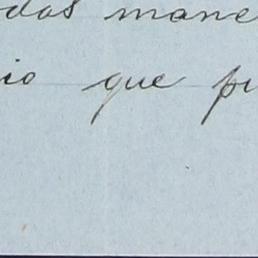 odas mane
io que pu